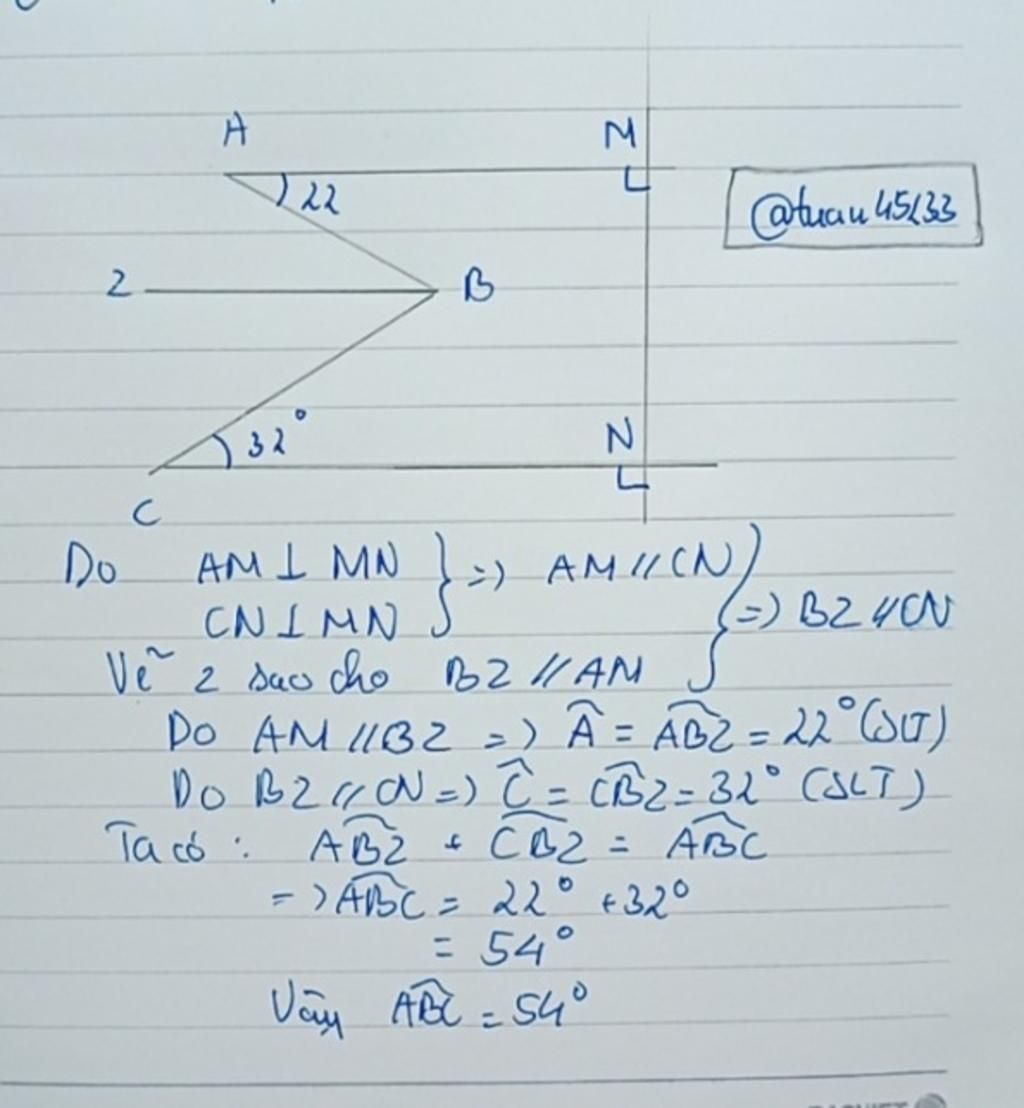 A
M
22
@tuan45633
2
B
32°
N
C
Do AM ⊥ MN
CN ⊥ MN
} => AM // CN
} => B2 // CN
Vẽ 2 sao cho B2 // AM
Do AM // B2 => Â = AB̂2 = 22° (SLT)
Do B2 // CN => Ĉ = CB̂2 = 32° (SLT)
Ta có : AB̂2 + CB̂2 = AB̂C
=> AB̂C = 22° + 32°
= 54°
Vậy AB̂C = 54°